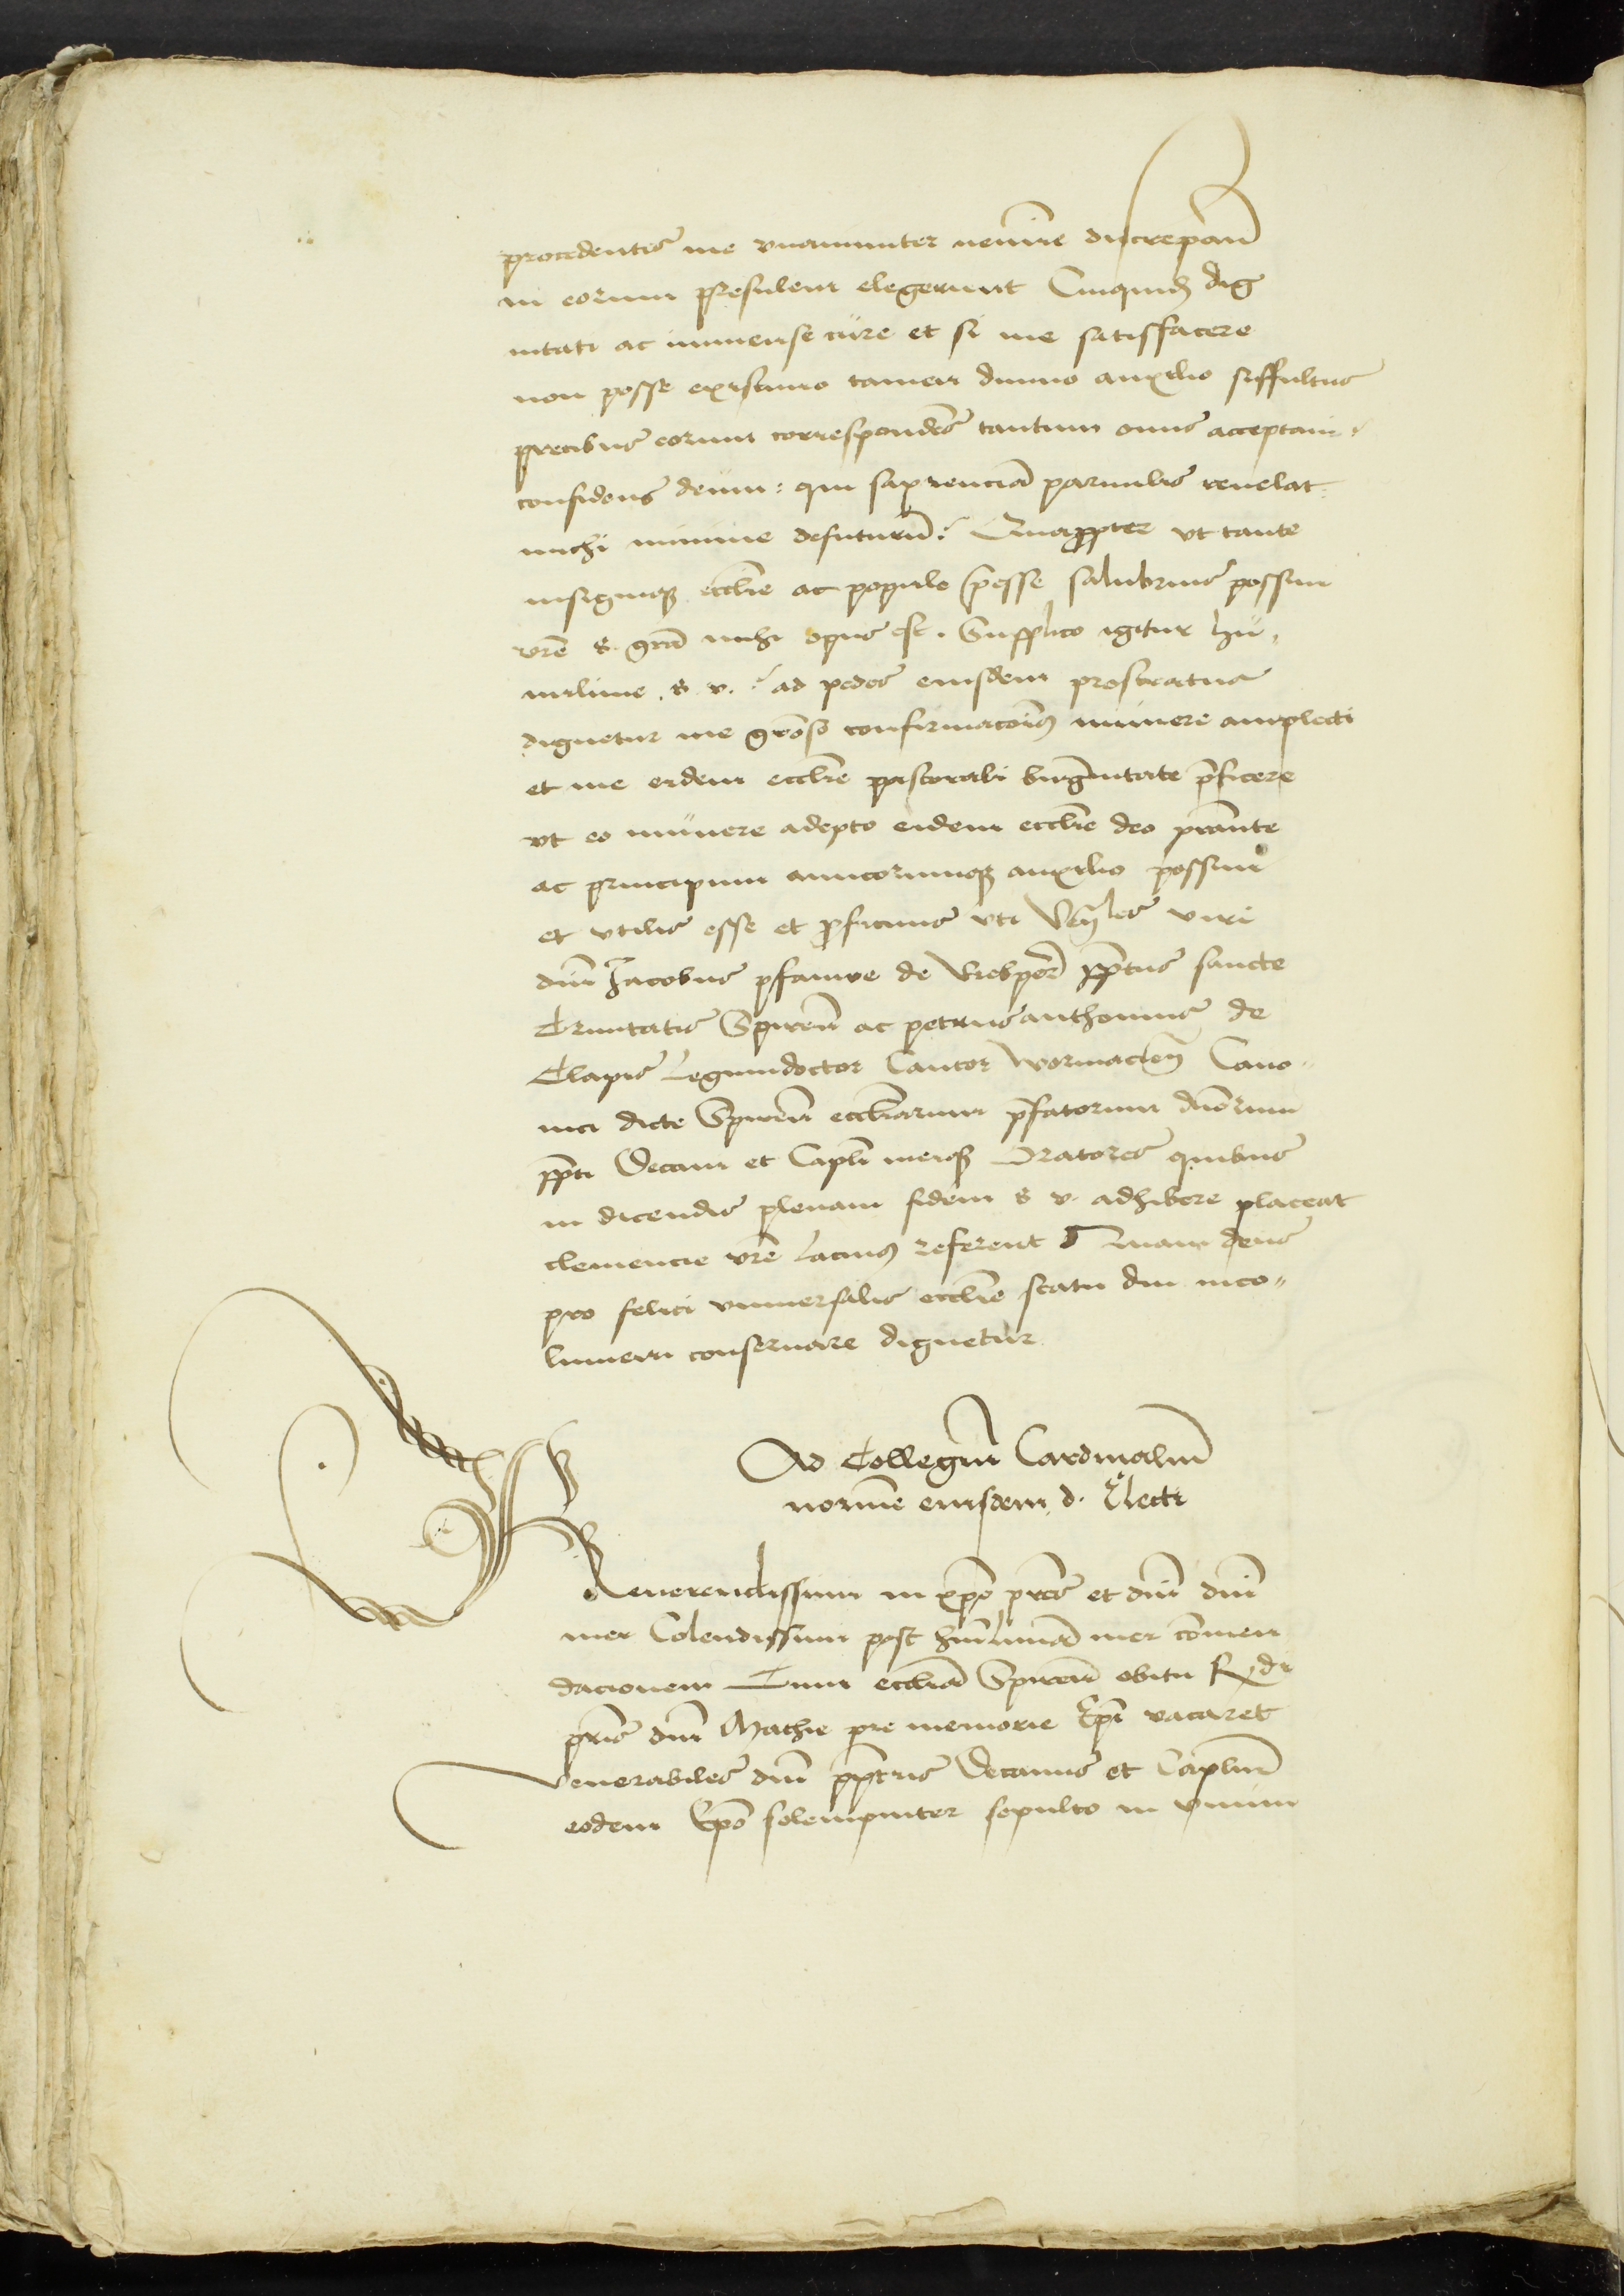 procedentes me vnanimiter nemine discrepan̄
in eorum presulem elegerunt Cuiquid dig
nitati ac inmense cure et si me satisfacere
non posse existimo tamen diuino auxilio suffultus
precibus eorum correspondēs tantum onus acceptaui
confidens deum: qui sapienciā paruulis reuelat
michi minime defuturū. Quapp̱ter vt tante
insigniqꝫ eccl̄ie ac populo p̄esse salubrius possim
vr̄e s. grā michi opus est. Supplico igitur hu-
milime .s. v. ad pedes eiusdem prostratus
dignetur me grōso confirmacōis munere amplecti
et me eidem eccl̄ie pastorali dignitate p̄ficere
vt eo munere adepto eidem eccl̄ie deo prānte
ac principum amicorumqꝫ auxilio possim
et vtilis esse et p̱ficuus vti Ven̄les viri
dn̄i Jacobus pfawe de Rietpōr p̱pt̄us sancte
Trinitatis Spiren̄ ac petrus anthonius de
Clapis Legumdoctor Cantor Wormacien̄ Cano-
nici dicte Spiren̄ eccl̄iarum p̄fatorum dn̄orum
p̱pt̄i Decani et Capl̄i meiqꝫ Oratores quibus
in dicendis plenam fidem s v. adhibere placeat
clemencie vr̄e lacius referent Quam deus
pro felici vniuersalis eccl̄ie statu diu inco-
lumem conseruare dignetur
Ad Collegiū Cardinaliū
nomīe eiusdem d. Electi
Reuerendissimi in xp̄o pr̄es et dn̄i dn̄i
mei Colendissimi post humilimā mei cōmen
dacionem Cum eccl̄iā Spiren̄ obitu R^di
pr̄is dn̄i Mathie pie memorie Ep̄i vacaret
Venerabiles dn̄i p̱pt̄us Decanus et Capl̄m
eodem Ep̄o solempniter sepulto in vnum